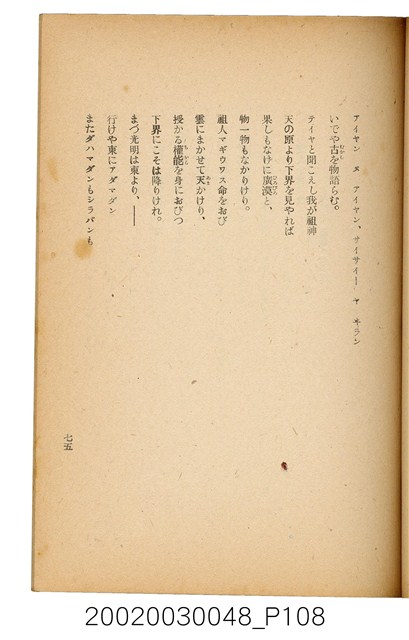 アイヤン ヌ アイヤン、サイサイー ヤ キラン
いでや古を物語らむ。
テイヤと聞こえし我が祖神
天の原より下界を見やれば
果しもなけに廣漠と、
物一物もなかりけり。
祖人マギウワス命をおび
雲にまかせて天かけり、
授かる權能を身におびつ
下界にこそは降りけれ。
まづ光明は東より、――
行けや東にアダマダン
またダハマダンもシラバンも
七五
20020030048_P108